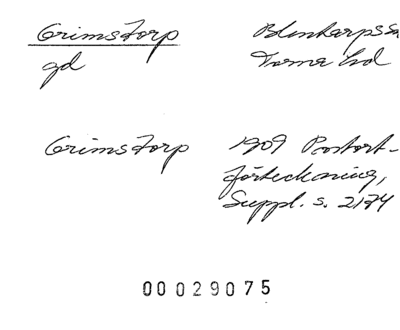 Grimstorp
gd
Blentarps sn
Torna hd
Grimstorp
1909 Postort-
förteckning,
Suppl. s. 2174
00029075